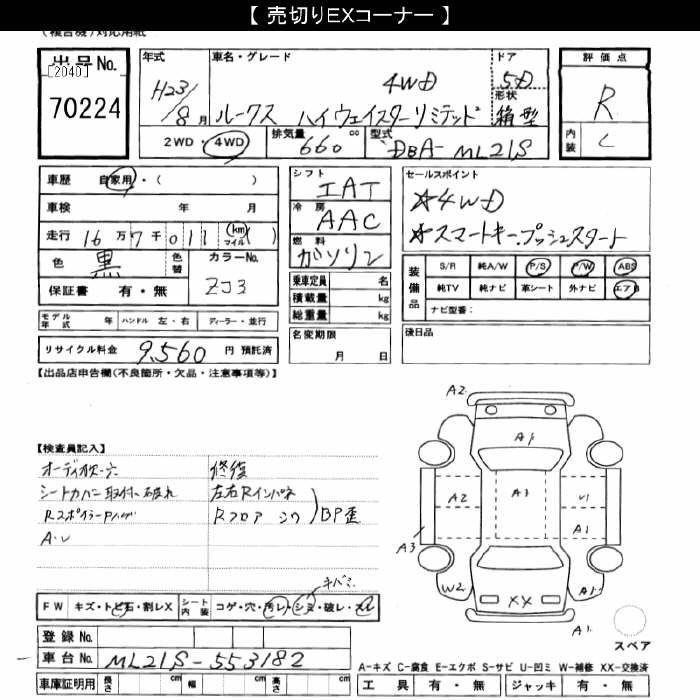 【 売切りEXコーナー 】
(複合機)対応用紙
出品No.
[2040]
70224
年式 車名・グレード ドア 評価点
H23/8月 ルークス ハイウェイスターリミテッド 4WD 5D R
形状 箱型
内装 C
2WD・4WD 排気量 660 cc 型式 DBA-ML21S
車歴 自家用・( )
車検 年 月
走行 16万7千011 (km マイル)( )
色 黒 色替 カラーNo. ZJ3
保証書 有・無
シフト IAT
冷房 AAC
燃料 ガソリン
乗車定員 名
積載量 kg
総重量 kg
セールスポイント
☆4WD
☆スマートキー.プッシュスタート
装備品 S/R 純A/W P/S P/W ABS
純TV 純ナビ 革シート 外ナビ エアB
ナビ型番:
モデル年式 年 ハンドル 左・右 ディーラー・並行
名変期限 月 日
後日品
リサイクル料金 9,560 円 預託済
【出品店申告欄(不良箇所・欠品・注意事項等)】
【検査員記入】
オーディオ欠・穴 修復
シートカバー取付・破れ 左右Rインパネ
Rスポイラーハゲ Rフロア シワ )BP歪
A・U
A2
A1
A2 A3 U1
A1
A3
W2 XX A1
A1
スペア
キバミ
FW キズ・トビ石・割レX シート内装 コゲ・穴・汚レ・シミ・破レ・スレ
登録No.
車台No. ML21S-553182
車庫証明用 長さ cm 幅 cm 高さ cm
A-キズ C-腐食 E-エクボ S-サビ U-凹ミ W-補修 XX-交換済
工具 有・無 ジャッキ 有・無